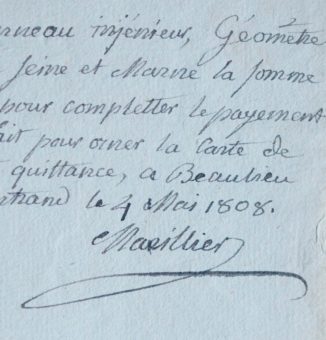 rneau injénieur, Géometre
Seine et Marne la somme
pour completter le payement
fait pour orner la Carte de
quittance, a Beaulieu
rtrand le 4 Mai 1808.
Marillier